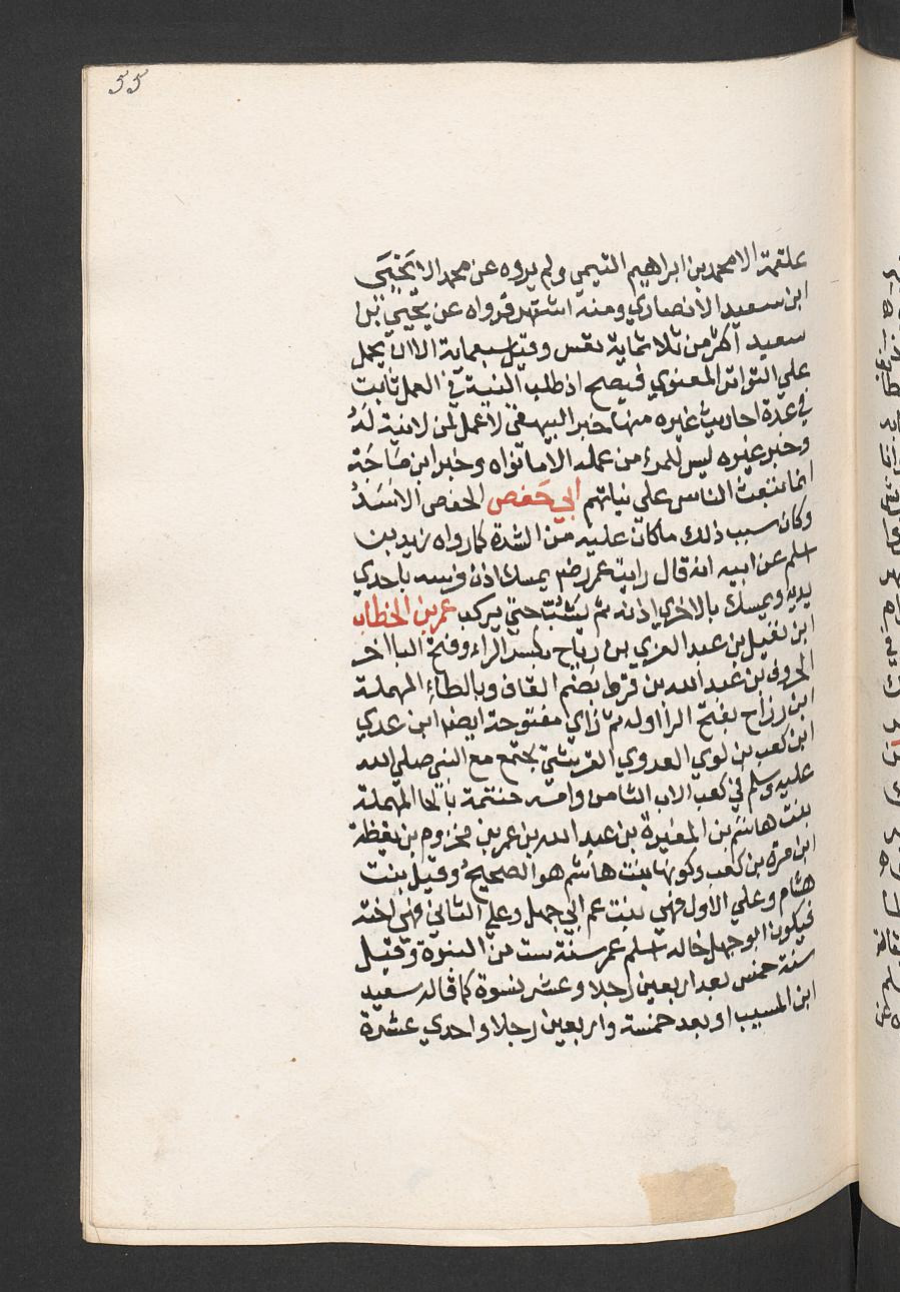 55
علقمة الا محمد بن ابراهيم التيمي ولم يروه عن محمد الا يَحْيَى
ابن سعيد الانصاري ومنه اشتهر فرواه عن يحيي بن
سعيد اكثر من ثلاثماية نفس وقيل سبعماية الا ان يحمل
علي التواتر المعنوي فيصح اذ طلب النية في العمل ثابت
في عدة احاديث غيره منها خبر البيهقي لا عمل لمن لا نية لهُ
وخبر غيره ليس للمرء من عمله الا ما نواه وخبر ابن ماجة
انما تبعث الناس علي نياتهم ابي حَفص الحفص الاسَدُ
وكان سبب ذلك ما كان عليه من الشدة كما رواه زيد بن
اسلم عن ابيه انه قال رايت عمر رضي يمسك اذن فرسه باحدي
يديه ويمسك بالاخري اذنه ثم يثب حتي يركب عمر بن الخطاب
ابن نفيل بن عبد العزي بن رياح بكسر الراء وفتح اليا اخر
الحروف بن عبد الله بن قرط بضم القاف وبالطاء المهملة
ابن رزاح بفتح الرا اوله ثم زاي مفتوحة ايضا ابن عدي
ابن كعب بن لوي العدوي القريشي يجتمع مع النبي صلي الله
عليه وسلم في كعب الاب الثامن وامه حنتمة بالحا المهملة
بنت هاشم بن المغيرة بن عبد الله بن عمر بن مخزوم بن يقظة
ابن مرة بن كعب وكونها بنت هاشم هو الصحيح وقيل بنت
هشام وعلي الاول فهي بنت عم ابي جهل وعلي الثاني فهي اخته
فيكون ابو جهل خاله اسلم عمر سنة ست من النبوة وقيل
سنة خمس بعد اربعين رجلا وعشر نسوة كما قاله سعيد
ابن المسيب او بعد خمسة واربعين رجلا واحدي عشرة